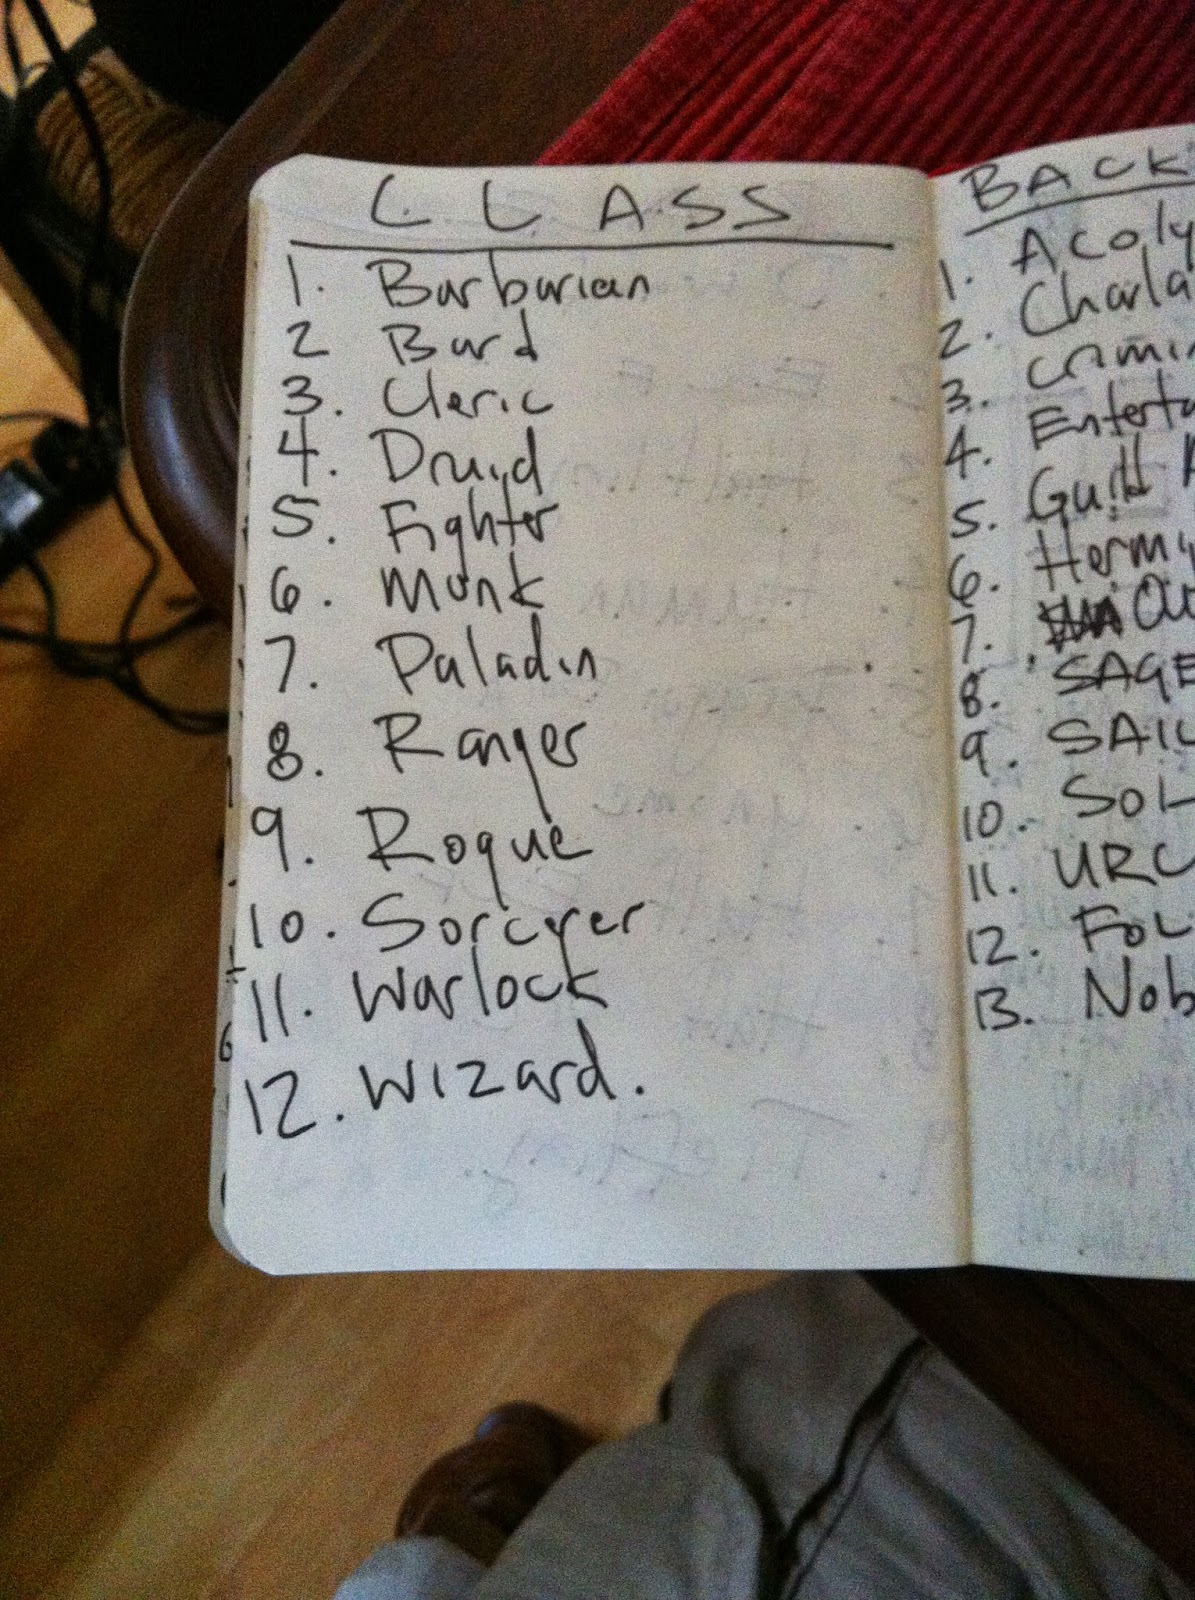 CLASS
1. Barbarian
2 Bard
3. Cleric
4. Druid
5. Fighter
6. Monk
7. Paladin
8. Ranger
9. Rogue
10. Sorcerer
11. Warlock
12. Wizard.
BACK
1. Acoly
2. Charla
3. Crimin
4. Enterta
5. Guild A
6. Hermi
7. Ou
8. SAGE
9. SAIL
10. SOL
11. URC
12. FOL
13. Nob